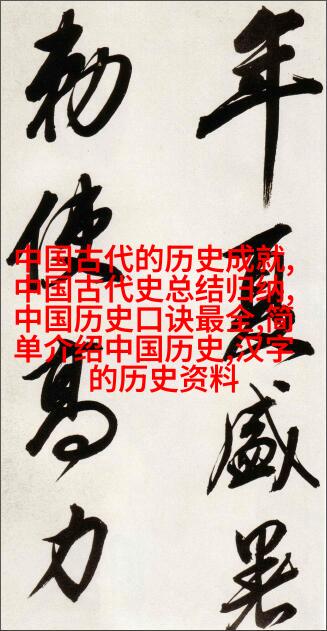 年夏盛暑
勅使高力
中国古代的历史成就,
中国古代史总结归纳,
中国历史口诀最全,简
单介绍中国历史,汉字
的历史资料